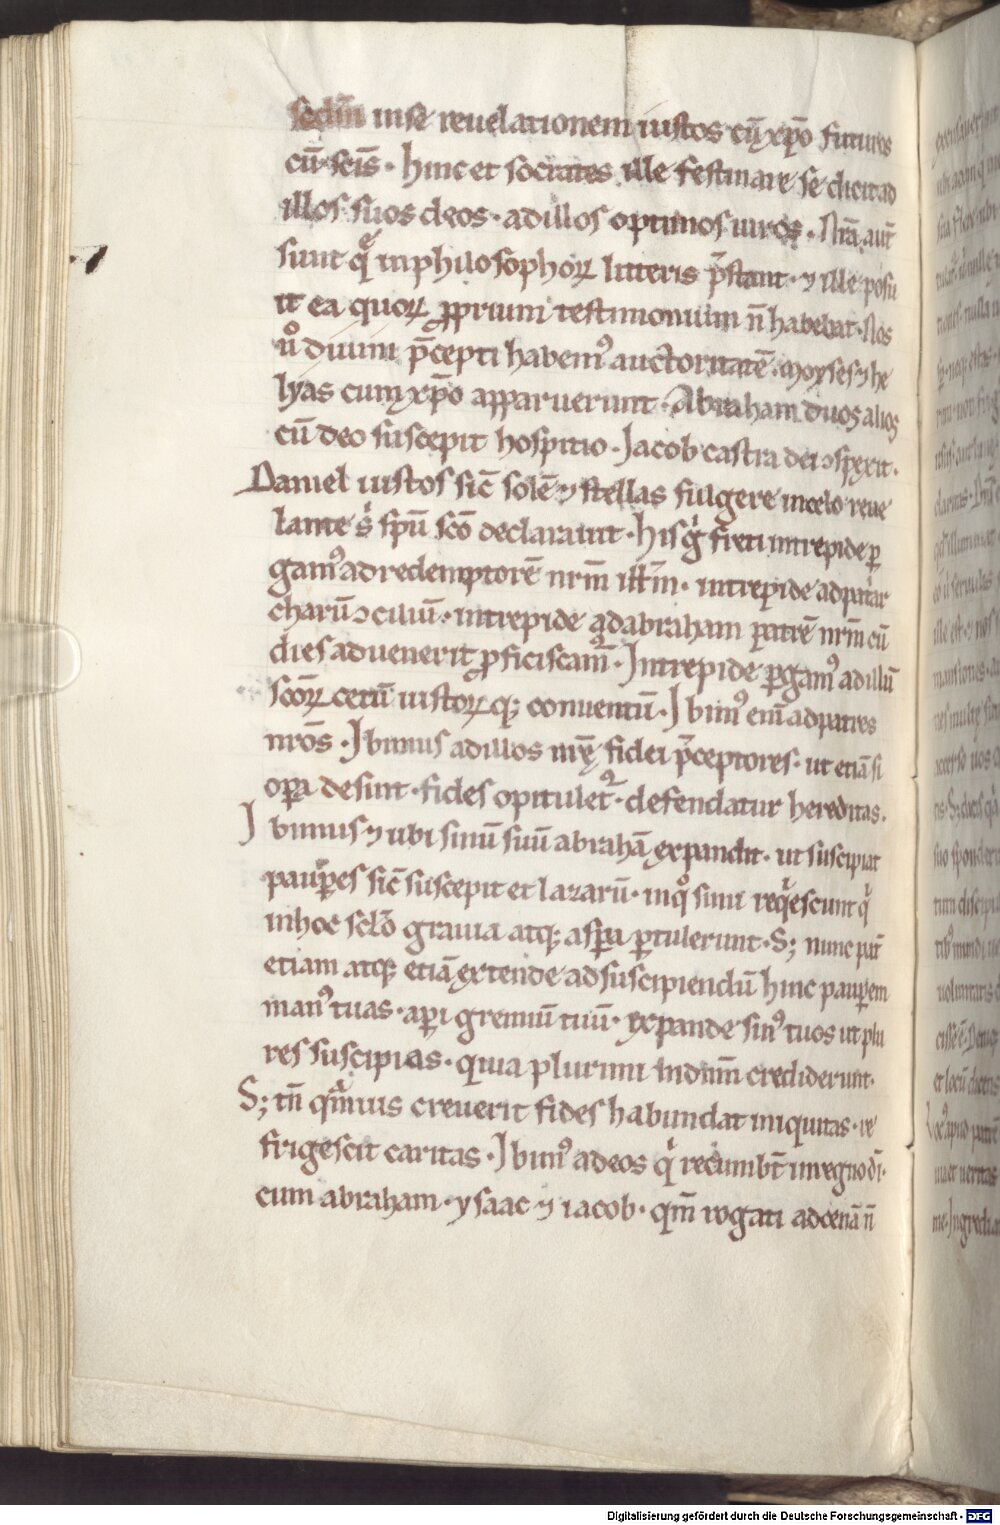 scd̄m iusti reuelationem iustos cū xp̄o futuros
cū sc̄is · hinc et socrates ille festinare se dicit ad
illos suos deos · ad illos optimos uiros · Nr̄a aut̄
sunt q̄ in philosophoꝝ litteris p̄stant · ⁊ ille posu
it ea quoꝝ ꝓprium testimonium n̄ habebat · Nos
u͛o diuini p̄cepti habem⁹ auctoritatē · Moyses ⁊ he
lyas cum xp̄o apparuerunt · Abraham duos alios
cū deo suscepit hospitio · Jacob castra dei ↄspexit ·
Daniel iustos sic̄ solē ⁊ stellas fulgere in celo reue
lante s͛ sp̄ū sc̄o declarauit · his g͛ freti intrepide p̱
gam⁹ ad redemptorē nr̄m ih̄m · intrepide ad patͥar
charū ↄciliū · intrepide ad abraham patrē nr̄m cū
dies aduenerit ꝓficiscam᷑ · Intrepide ꝑgam⁹ ad illū
sc̄oꝝ cetū iustoꝝ q; conuentū · Ibim⁹ enī ad patres
nr̄os · Ibimus ad illos nr̄ę fidei p̄ceptores · ut etiā si
oꝑa desint · fides opitulet᷑ · defendatur hereditas ·
Ibimus ⁊ ubi sinū suū abrahā expandit · ut suscipiat
pauꝑes sic̄ suscepit et lazarū · in qͦ sinu req̇escunt qͥ
in hoc sc̄lo grauia atq; asꝑa ꝑtulerunt · S; nunc pat̄
etiam atq; etiā extende ad suscipiendū hinc pauꝑem
man⁹ tuas · aꝑi gremiū tuū · expande sin⁹ tuos ut plu
res suscipias · quia plurimi in dn̄m crediderunt ·
S; tn̄ qͣmuis creuerit fides habundat iniquitas · re
frigescit caritas · Ibim⁹ ad eos qͥ recūmbt̄ in regno dī ·
cum abraham · ysaac ⁊ iacob · qm̄ rogati ad cenā n̄
Digitalisierung gefördert durch die Deutsche Forschungsgemeinschaft - DFG